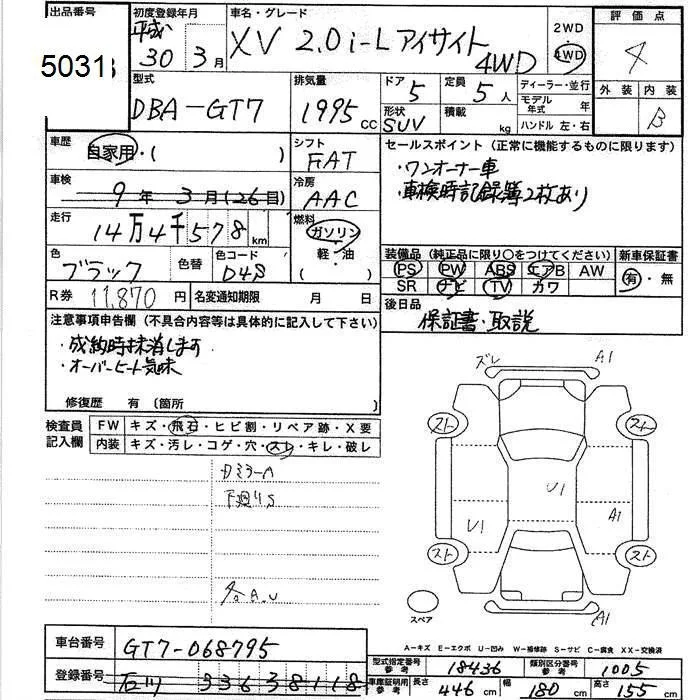 出品番号
5031
初度登録年月
平成
30年 3月
車名・グレード
XV 2.0i-L アイサイト
4WD
2WD
4WD
評価点
4
外装 内装
B
型式
DBA-GT7
排気量
1995 cc
ドア
5
定員
5人
形状
SUV
積載
kg
ディーラー・並行
モデル年式 年
ハンドル 左・右
車歴
自家用・( )
シフト
FAT
セールスポイント (正常に機能するものに限ります)
・ワンオーナー車
・車検時記録簿2枚あり
車検
9年 3月(26日)
冷房
AAC
走行
14万4千578 km
燃料
ガソリン
・
軽・油
( )
色
ブラック
色替
色コード
D4S
装備品 (純正品に限り○をつけてください)
PS PW ABS エアB AW
SR ナビ TV カワ
新車保証書
有・無
R券 11,870 円
名変通知期限 月 日
後日品
保証書・取説
注意事項申告欄 (不具合内容等は具体的に記入して下さい)
・成約時抹消します
・オーバーヒート気味
修復歴 有 (箇所 )
検査員
記入欄
FW キズ・飛石・ヒビ割・リペア跡・X要
内装 キズ・汚レ・コゲ・穴・スレ・キレ・破レ
ミラーA
下廻りS
各A.U
ズレ
A1
スト
スト
U1
U1
A1
スト
スト
スペア
A1
A-キズ E-エクボ U-凹み W-補修跡 S-サビ C-腐食 XX-交換済
車台番号
GT7-068795
登録番号
石川
型式指定番号
参考
18436
類別区分番号
参考
1005
車庫証明用
参考
長さ
446 cm
幅
180 cm
高さ
155 cm